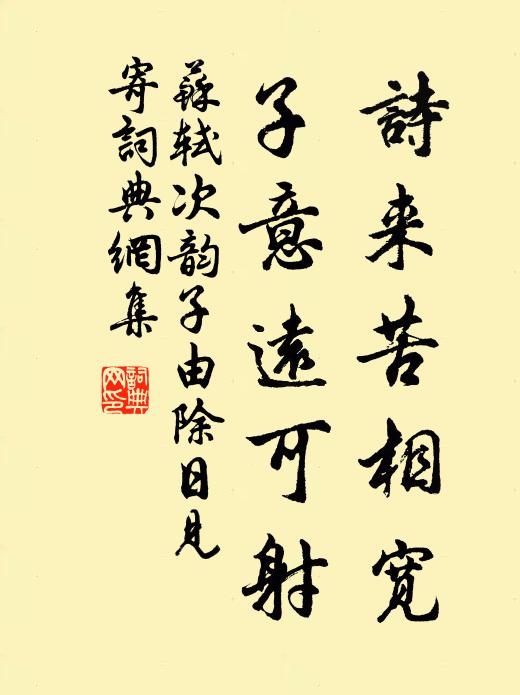 詩来苦相寬
子意遠可射
蘇軾次韵子由除日見
寄詞典網集
詞典
网印